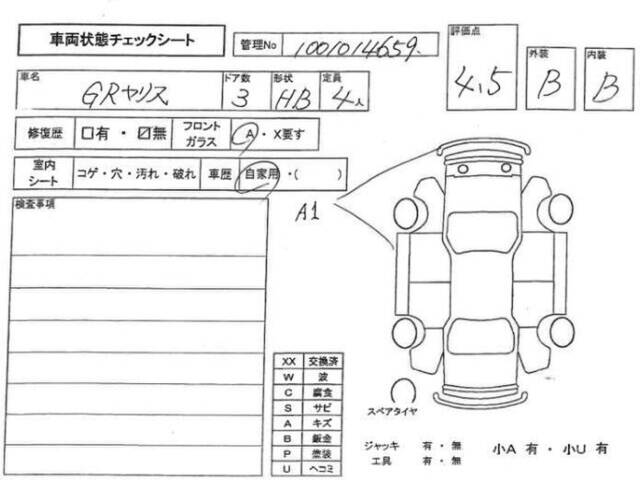 車両状態チェックシート
管理No 1001014659.
評価点 4.5
外装 B
内装 B
車名 GRヤリス
ドア数 3
形状 HB
定員 4人
修復歴 □有・☑無
フロントガラス A・X要す
室内シート コゲ・穴・汚れ・破れ
車歴 自家用・( )
検査事項
A1
XX 交換済
W 波
C 腐食
S サビ
A キズ
B 鈑金
P 塗装
U ヘコミ
スペアタイヤ
ジャッキ 有・無
工具 有・無
小A 有・小U 有